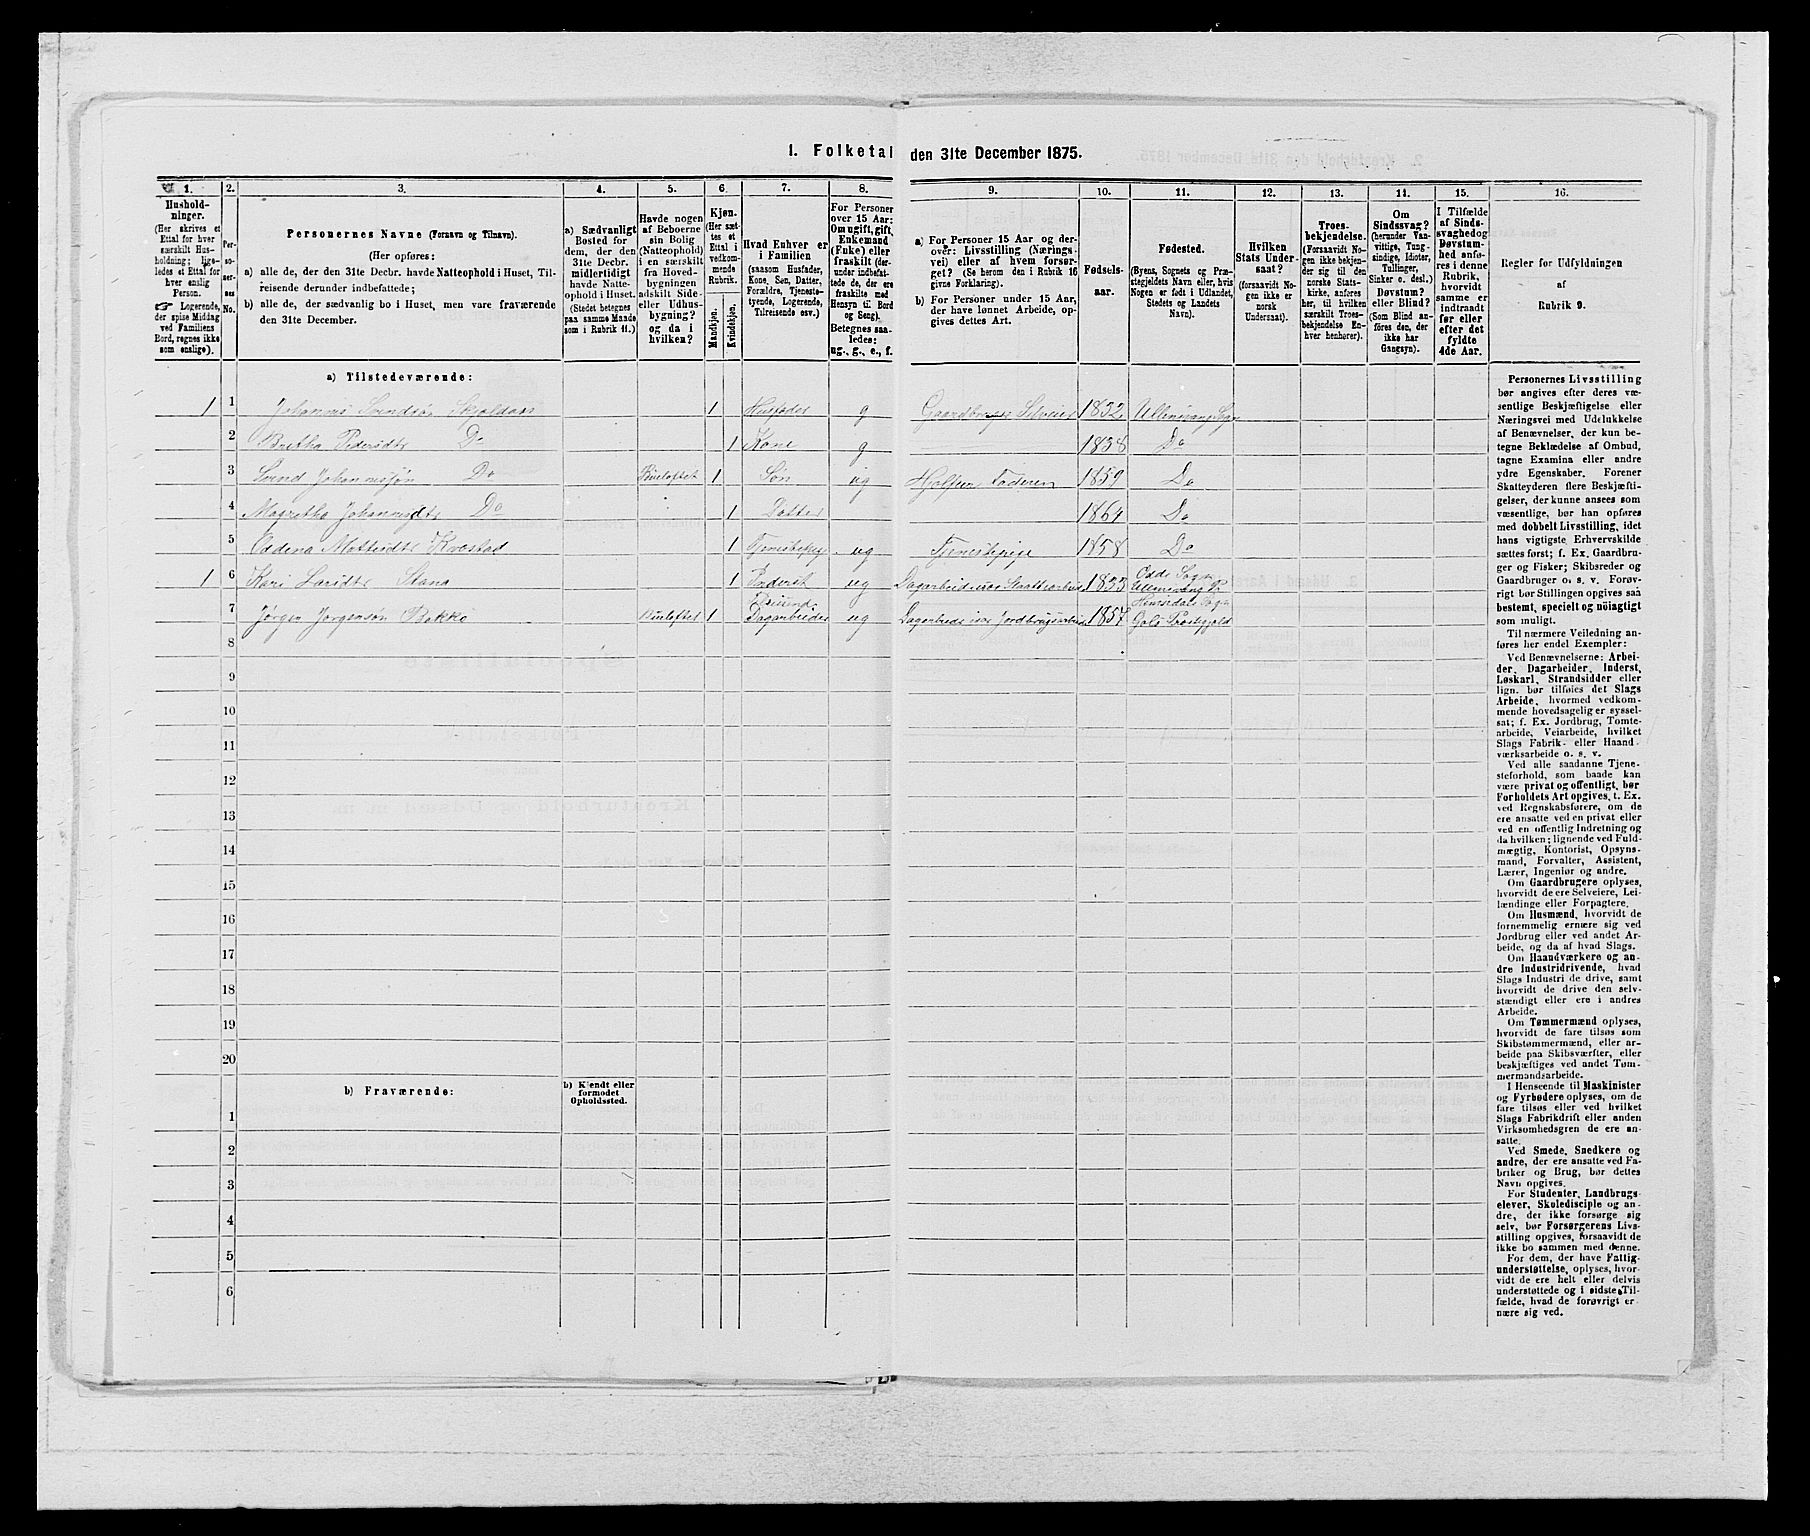 1. Folketal den 31te December 1875.
1.
2.
3.
4.
5.
6.
7.
8.
9.
10.
11.
12.
13.
14.
15.
16.
Hushold-
ninger.
(Her skrives et
Ettal for hver
særskilt Hus-
holdning; lige-
ledes et Ettal for
hver enslig
Person.
☞ Logerende,
der spise Middag
ved Familiens
Bord, regnes ikke
som enslige).
Per-
so-
ner-
nes
No.
Personernes Navne (Fornavn og Tilnavn).
(Her opføres:
a) alle de, der den 31te Decbr. havde Natteophold i Huset, Til-
reisende derunder indbefattede;
b) alle de, der sædvanlig bo i Huset, men vare fraværende
den 31te December.
a) Sædvanligt
Bosted for
dem, der den
31te Decbr.
midlertidigt
havde Natte-
ophold i Huset.
(Stedet betegnes
paa samme Maade
som i Rubrik 11.)
Havde nogen
af Beboerne
sin Bolig
(Natteophold)
i en særskilt
fra Hoved-
bygningen
adskilt Side-
eller Udhus-
bygning?
og da i
hvilken?
Kjøn.
(Her sæt-
tes et
Ettal i
vedkom-
mende
Rubrik.
Mandkjøn.
Kvindekjøn.
Hvad Enhver er
i Familien
(saasom Husfader,
Kone, Søn, Datter,
Forældre, Tjeneste-
tyende, Logerende,
Tilreisende osv.)
For Personer
over 15 Aar:
Om ugift, gift,
Enkemand
(Enke) eller
fraskilt (der-
under indbefat-
tede de, der ere
fraskilte med
Hensyn til Bord
og Seng).
Betegnes saa-
ledes:
ug., g., e., f.
a) For Personer 15 Aar og der-
over: Livsstilling (Nærings-
vei) eller af hvem forsør-
get? (Se herom den i Rubrik 16
givne Forklaring).
b) For Personer under 15 Aar,
der have lønnet Arbeide, op-
gives dettes Art.
Fødsels-
aar.
Fødested.
(Byens, Sognets og Præ-
stegjeldets Navn eller, hvis
Nogen er født i Udlandet,
Stedets og Landets
Navn).
Hvilken
Stats Under-
saat?
(forsaavidt No-
gen ikke er
norsk
Undersaat).
Troes-
bekjendelse.
(Forsaavidt No-
gen ikke bekjen-
der sig til den
norske Stats-
kirke, anføres
her, til hvilken
særskilt Troes-
bekjendelse En-
hver henhører).
Om
Sindssvag?
(herunder Van-
vittige, Tung-
sindige, Idioter,
Tullinger,
Sinker o. desl.)
Døvstum?
eller Blind?
(Som Blind an-
føres den, der
ikke har
Gangsyn).
I Tilfælde
af Sinds-
svaghed og
Døvstum-
hed anfø-
res i denne
Rubrik,
hvorvidt
samme er
indtraadt
før eller
efter det
fyldte
4de Aar.
Regler for Udfyldningen
af
Rubrik 9.
a) Tilstedeværende:
1 1 Johannes Svendsøn Skjoldaas 1 Husfader g Gaardbruger Selveier 1832 Ullensvang Sogn
2 Brettha Pedersdtr Do 1 Kone g 1838 Do
3 Svend Johannessøn Do Bueloftet 1 Søn ug Hjælper Faderen 1859 Do
4 Magretha Johannesdtr Do 1 Datter 1864 Do
5 Oddena 1 ug Tjenestepige 1858 Do
1 6 Kari Stana 1 Inderst ug Dagarbeid 1833 Odde Sogn Ullensvang P
7 Jørgen Jørgensøn Bakke Bueloftet 1 Dagarbeider ug Dagarbeid Jordbrugsarbeid 1857 Hemsedals Sogn Gols Præstegjeld
8
9
10
11
12
13
14
15
16
17
18
19
20
b) Fraværende:
b) Kjendt eller
formodet
Opholdssted.
1
2
3
4
5
6
Personernes Livsstilling
bør angives efter deres væ-
sentlige Beskjæftigelse eller
Næringsvei med Udelukkelse
af Benævnelser, der kun be-
tegne Beklædelse af Ombud,
tagne Examina eller andre
ydre Egenskaber. Forener
Skatteyderen flere Beskjæfti-
gelser, der kunne ansees som
væsentlige, bør han opføres
med dobbelt Livsstilling, idet
hans vigtigste Erhvervskilde
sættes først; f. Ex. Gaardbru-
ger og Fisker; Skibsreder og
Gaardbruger o. s. v. Forøv-
rigt bør Stillingen opgives saa
bestemt, specielt og nøiagtigt
som muligt.
Til nærmere Veiledning an-
føres her endel Exempler:
Ved Benævnelserne: Arbei-
der, Dagarbeider, Inderst,
Løskarl, Strandsidder eller
lign. bør tilføies det Slags
Arbeide, hvormed vedkom-
mende hovedsagelig er syssel-
sat; f. Ex. Jordbrug, Tomte-
arbeide, Veiarbeide, hvilket
Slags Fabrik- eller Haand-
værksarbeide o. s. v.
Ved alle saadanne Tjene-
steforhold, som baade kan
være privat og offentligt, bør
Forholdets Art opgives, t. Ex.
ved Regnskabsførere, om de
ere ansatte ved en privat eller
ved en offentlig Indretning og
da hvilken; lignende ved Fuld-
mægtig, Kontorist, Opsyns-
mand, Forvalter, Assistent,
Lærer, Ingeniør og andre.
Om Gaardbrugere oplyses,
hvorvidt de ere Selveiere, Lei-
lændinge eller Forpagtere.
Om Husmænd, hvorvidt de
fornemmelig ernære sig ved
Jordbrug eller ved andet Ar-
beide, og da af hvad Slags.
Om Haandværkere og an-
dre Industridrivende, hvad
Slags Industri de drive, samt
hvorvidt de drive den selv-
stændigt eller ere i andres
Arbeide.
Om Tømmermænd oplyses,
hvorvidt de fare tilsøs som
Skibstømmermænd, eller ar-
beide paa Skibsværfter, eller
beskjæftiges ved andet Tøm-
mermandsarbeide.
I Henseende til Maskinister
og Fyrbødere oplyses, om de
fare tilsøs eller ved hvilket
Slags Fabrikdrift eller anden
Virksomhedsgren de ere an-
satte.
Ved Smede, Snedkere og
andre, der ere ansatte ved Fa-
briker og Brug, bør dettes
Navn opgives.
For Studenter, Landbrugs-
elever, Skoledisciple og an-
dre, der ikke forsørge sig
selv, bør Forsørgerens Livs-
stilling opgives, forsaavidt de
ikke bo sammen med denne.
For dem, der have Fattig-
understøttelse, oplyses, hvor-
vidt de ere helt eller delvis
understøttede og i sidste Til-
fælde, hvad de forøvrigt er-
nære sig ved.